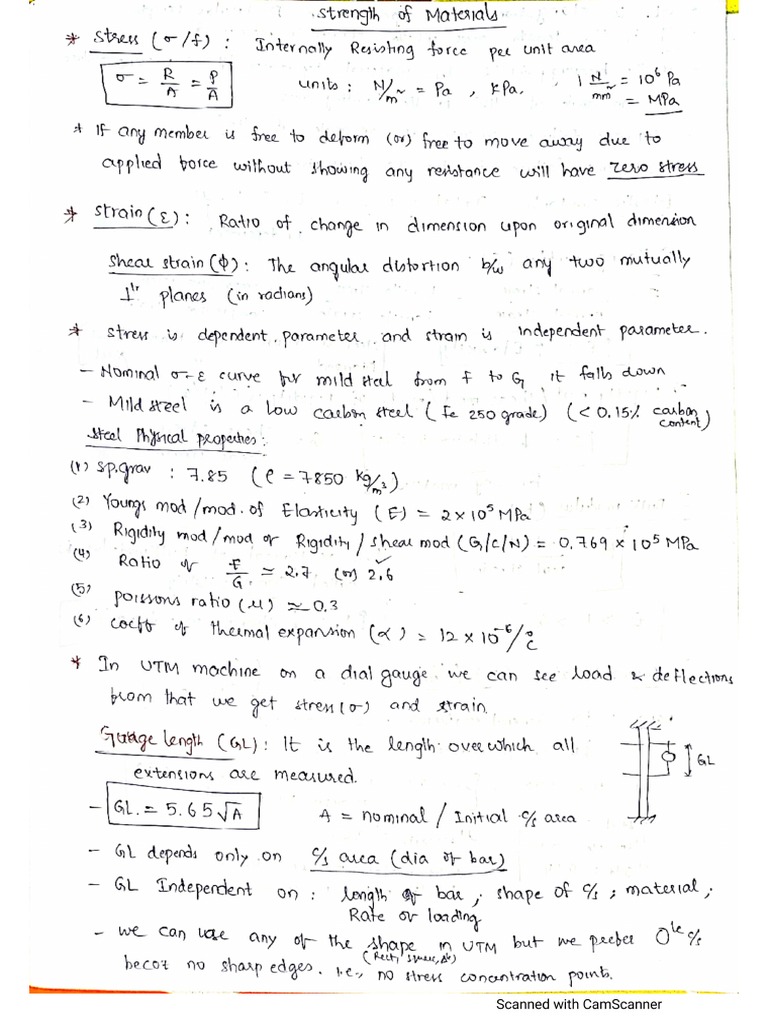 Strength of Materials
* Stress (σ/f) : Internally Resisting force per unit area
σ = R/A = P/A
units : N/m² = Pa , kPa. 1 N/mm² = 10⁶ Pa
= MPa
* If any member is free to deform (or) free to move away due to
applied force without showing any resistance will have zero stress
* Strain (ε) : Ratio of change in dimension upon original dimension
Shear strain (ϕ) : The angular distortion b/w any two mutually
⊥lr planes (in radians)
* stress is dependent parameter and strain is independent parameter.
- Nominal σ-ε curve for mild steel from F to G, it falls down
- Mild steel is a Low carbon steel (Fe 250 grade) (< 0.15% carbon content)
Steel Physical properties :
(1) Sp.grav : 7.85 (ρ = 7850 kg/m³)
(2) Youngs mod/mod. of Elasticity (E) = 2 × 10⁵ MPa
(3) Rigidity mod/mod of Rigidity / shear mod (G/C/N) = 0.769 × 10⁵ MPa
(4) Ratio of E/G ≃ 2.7 (or) 2.6
(5) poissons ratio (μ) ≃ 0.3
(6) coeft of thermal expansion (α) = 12 × 10⁻⁶/°C
* In UTM machine on a dial gauge we can see load & deflections
from that we get stress(σ) and strain.
Guage length (GL) : It is the length over which all
extensions are measured.
GL
- GL. = 5.65√A A = nominal / Initial c/s area
- GL depends only on c/s area (dia of bar)
- GL Independent on : length of bar, shape of c/s, material,
Rate of loading
- we can use any of the shape in UTM but we prefer Ole c/s
(Rect, square, Δle)
becoz no sharp edges. i.e., no stress concentration points.
Scanned with CamScanner